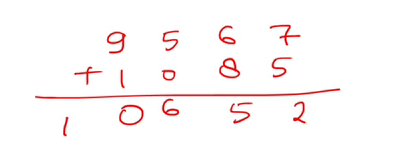 9 5 6 7
+ 1 0 8 5
1 0 6 5 2